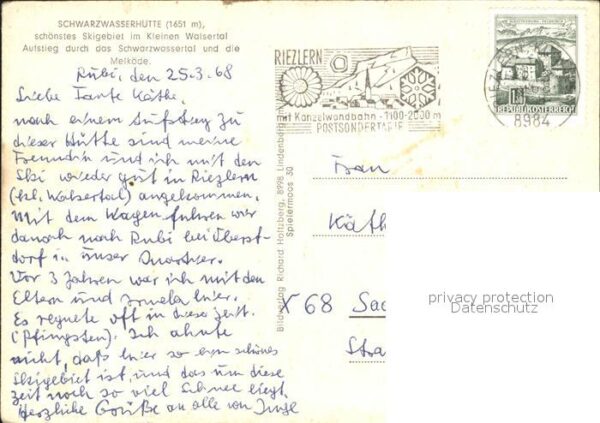 SCHWARZWASSERHÜTTE (1651 m),
schönstes Skigebiet im Kleinen Walsertal
Aufstieg durch das Schwarzwassertal und die
Melköde.
Rubi, den 25.3.68
Liebe Tante Käthe,
nach einem Aufstieg zu
dieser Hütte sind meine
Freundin und ich mit den
Ski wieder gut in Riezlern
(kl. Walsertal) angekommen.
Mit dem Wagen fuhren wir
danach nach Rubi bei Oberst-
dorf in unser Quartier.
Vor 3 Jahren war ich mit den
Eltern und hier.
Es regnete oft in dieser Zeit.
(Pfingsten). Ich ahnte
nicht, daß hier so ein schönes
Skigebiet ist, und das um diese
Zeit noch so viel Schnee liegt.
Herzliche Grüße an alle von Inge
Bildverlag Richard Holtzberg, 8998 Lindenberg
Spielermoos 30
RIEZLERN
mit Kanzelwandbahn - 1100-2000 m
POSTSONDERTARIFE
REPUBLIK ÖSTERREICH
8984
Frau
Käth
X 68 Saa
Stra
privacy protection
Datenschutz